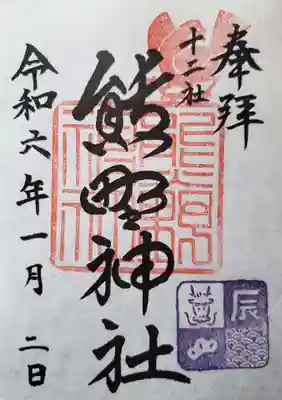 奉拝
十二社
熊野神社
令和六年一月二日
辰